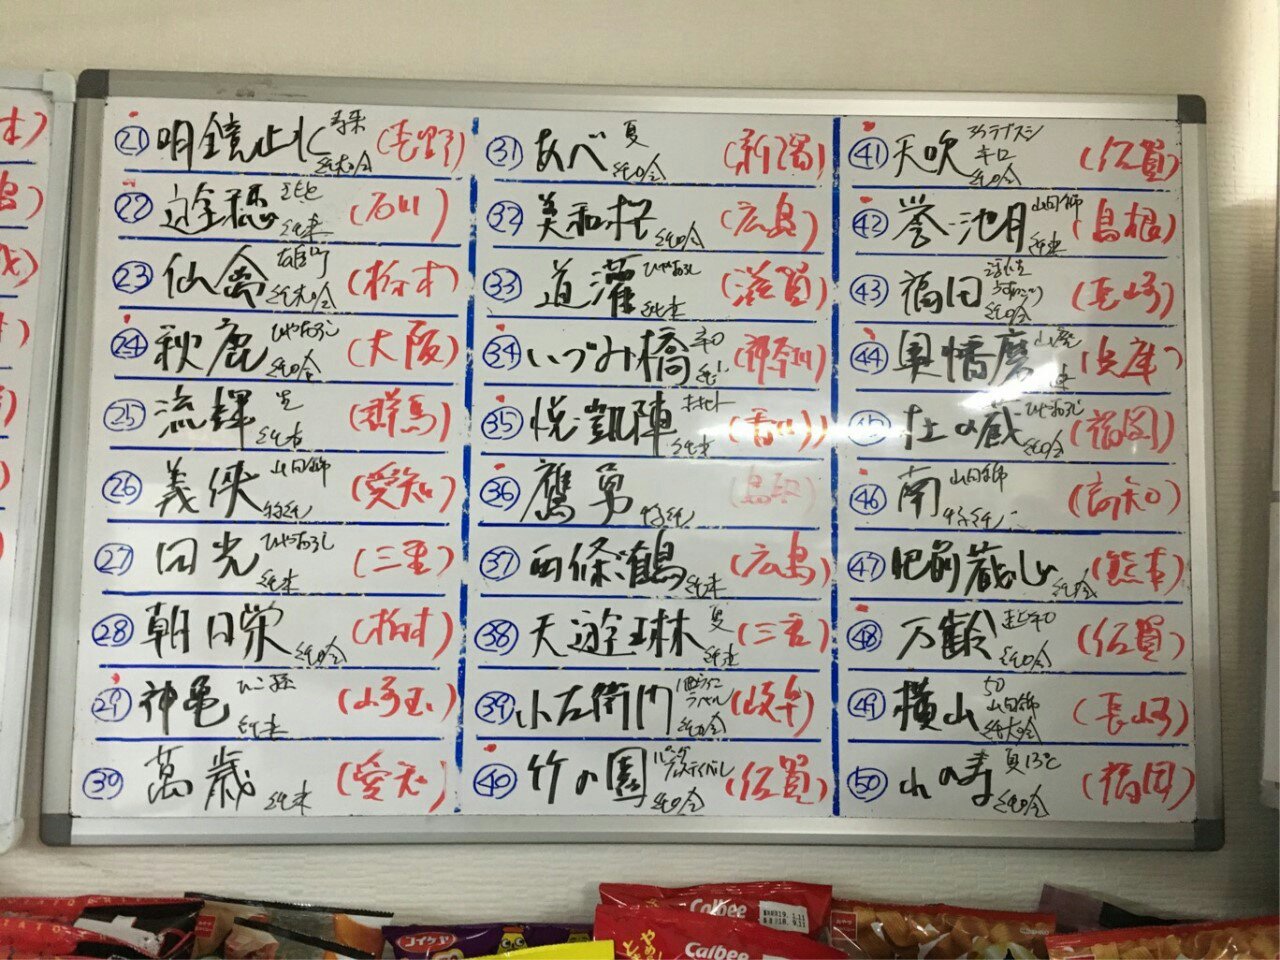 21 明鏡止水 純米吟 (長野)
22 遊穂 純米 (石川)
23 仙禽 雄町 純米吟 (栃木)
24 秋鹿 ひやおろし 純吟 (大阪)
25 流輝 純吟 (群馬)
26 義侠 山田錦 特純 (愛知)
27 田光 ひやおろし 純米 (三重)
28 朝日栄 純吟 (栃木)
29 神亀 ひこ孫 純米 (埼玉)
30 萬歳 純米 (愛知)
31 あべ 夏 純吟 (新潟)
32 美和桜 純吟 (広島)
33 道灌 ひやおろし 純米 (滋賀)
34 いづみ橋 (神奈川)
35 悦凱陣 純米 (香川)
36 鷹勇 特純 (鳥取)
37 西條鶴 純米 (広島)
38 天遊琳 夏 純米 (三重)
39 小左衛門 純吟 (岐阜)
40 竹の園 純吟 (佐賀)
41 天吹 辛口 純吟 (佐賀)
42 誉池月 山田錦 純米 (島根)
43 福田 活性 純吟 (長崎)
44 奥播磨 山廃 (兵庫)
45 杜の蔵 ひやおろし 純吟 (福岡)
46 南 山田錦 特純 (高知)
47 肥前蔵心 純吟 (熊本)
48 万齢 超辛 純吟 (佐賀)
49 横山 50 山田錦 純大吟 (長崎)
50 山の寿 夏13℃ 純吟 (福岡)
Calbee
Calbee
コイケヤ